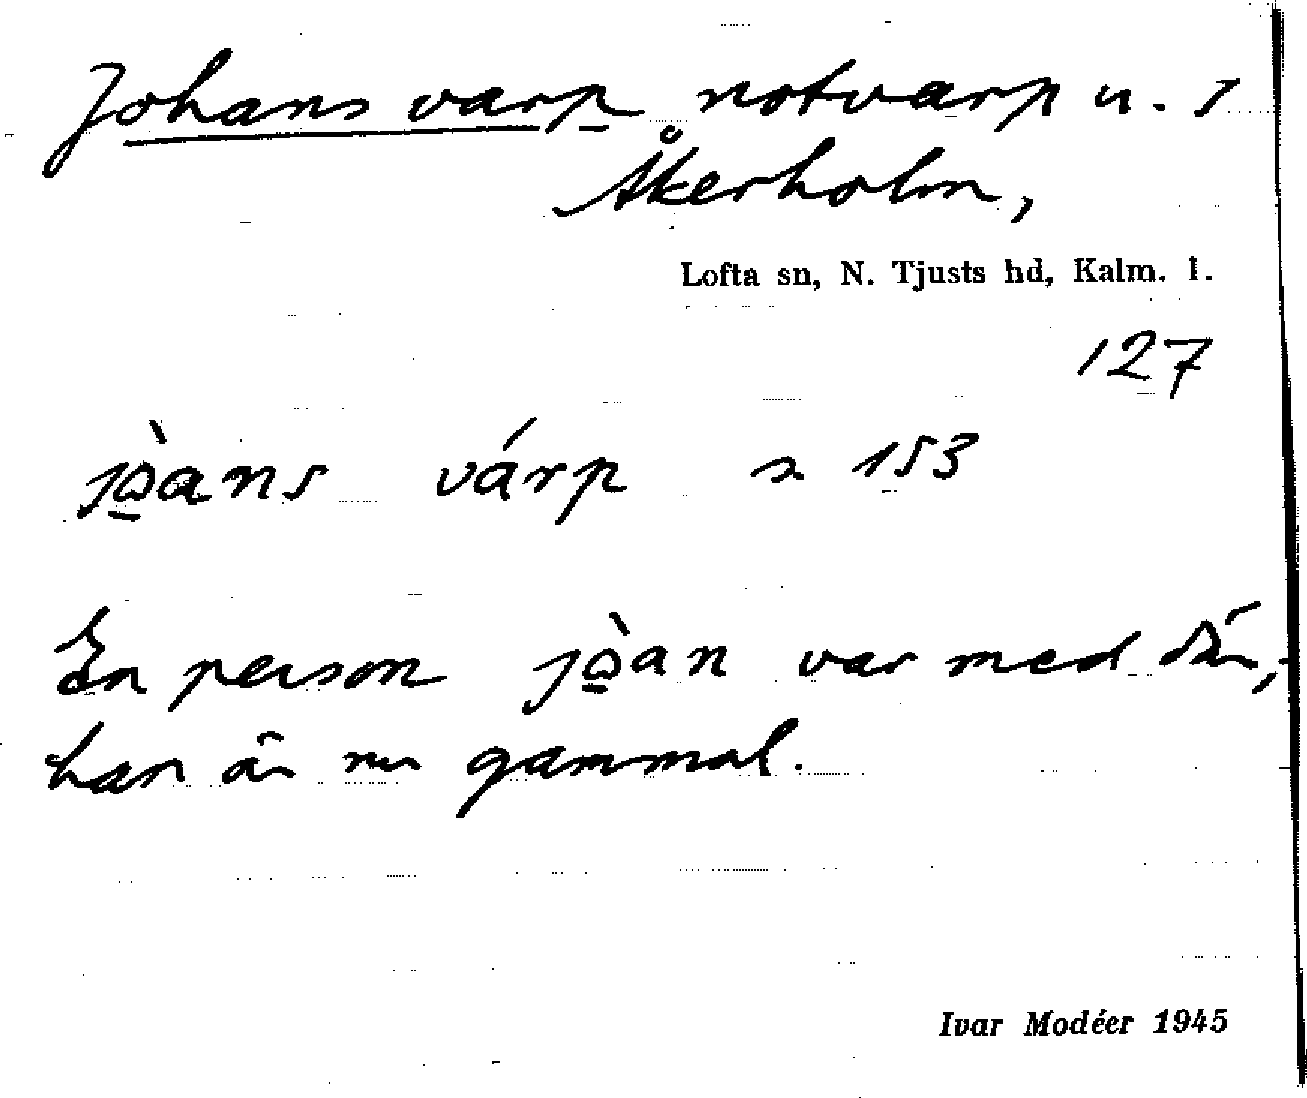 Johans varp notvarp n. I
Åkerholm,
Lofta sn, N. Tjusts hd, Kalm. l.
127
jò̲ans várp s 153
En person jò̲an var med där,
han är nu gammal.
Ivar Modéer 1945